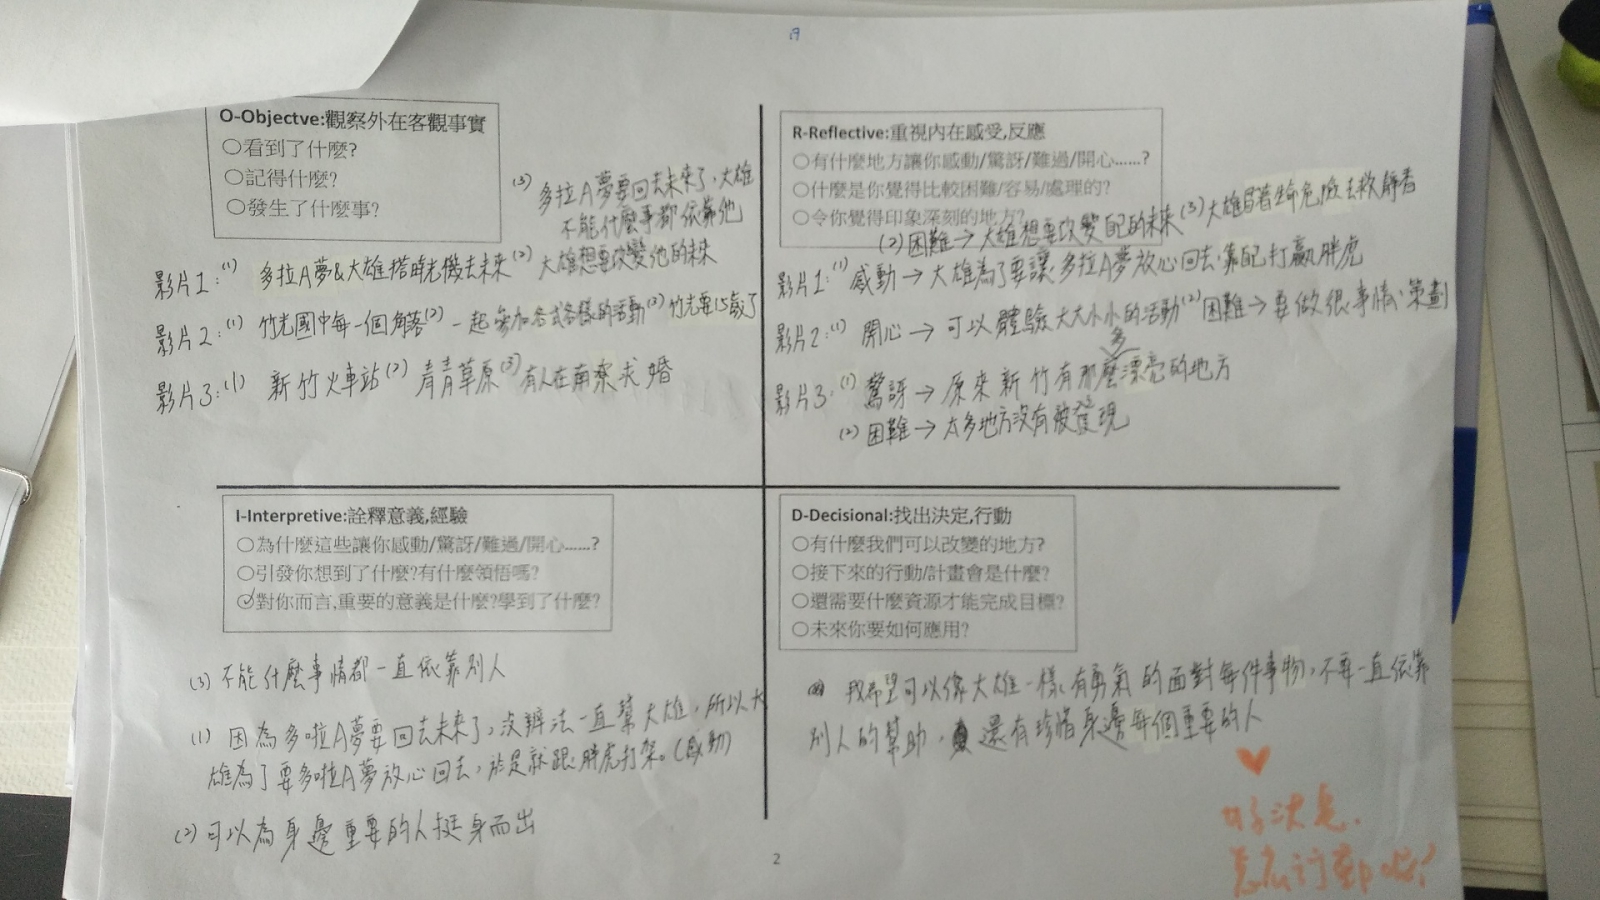 19
O-Objectve:觀察外在客觀事實
○看到了什麼?
○記得什麼?
○發生了什麼事?
(3) 多拉A夢要回去未來了,大雄
不能什麼事都依靠他
影片1:(1) 多拉A夢&大雄搭時光機去未來(2) 大雄想要改變他的未來
影片2:(1) 竹光國中每一個角落(2) 一起參加各式各樣的活動(3) 竹光要15歲了
影片3:(1) 新竹火車站(2) 青青草原(3) 有人在南寮求婚
R-Reflective:重視內在感受,反應
○有什麼地方讓你感動/驚訝/難過/開心......?
○什麼是你覺得比較困難/容易/處理的?
○令你覺得印象深刻的地方?
(2) 困難→大雄想要改變自己的未來(3) 大雄冒著生命危險去救靜香
影片1:(1) 感動→大雄為了要讓多拉A夢放心回去,靠自己打贏胖虎
影片2:(1) 開心→可以體驗大大小小的活動(2) 困難→要做很多事情、策劃
影片3:(1) 驚訝→原來新竹有那麼漂亮的地方
(2) 困難→太多地方沒有被發現
I-Interpretive:詮釋意義,經驗
○為什麼這些讓你感動/驚訝/難過/開心......?
○引發你想到了什麼?有什麼領悟嗎?
○對你而言,重要的意義是什麼?學到了什麼?
(3) 不能什麼事情都一直依靠別人
(1) 因為多啦A夢要回去未來了,沒辦法一直幫大雄,所以大
雄為了要多啦A夢放心回去,於是就跟胖虎打架。(感動)
(2) 可以為身邊重要的人挺身而出
D-Decisional:找出決定,行動
○有什麼我們可以改變的地方?
○接下來的行動/計畫會是什麼?
○還需要什麼資源才能完成目標?
○未來你要如何應用?
我希望可以像大雄一樣有勇氣的面對每件事物,不要一直依靠
別人的幫助,還有珍惜身邊每個重要的人
好決定.
怎麼行動呢?
2